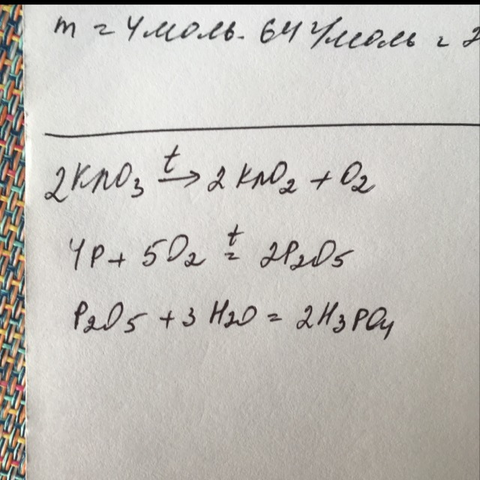 m = 4 моль · 64 г/моль = 2
2KNO3 t→ 2KNO2 + O2
4P + 5O2 t= 2P2O5
P2O5 + 3H2O = 2H3PO4